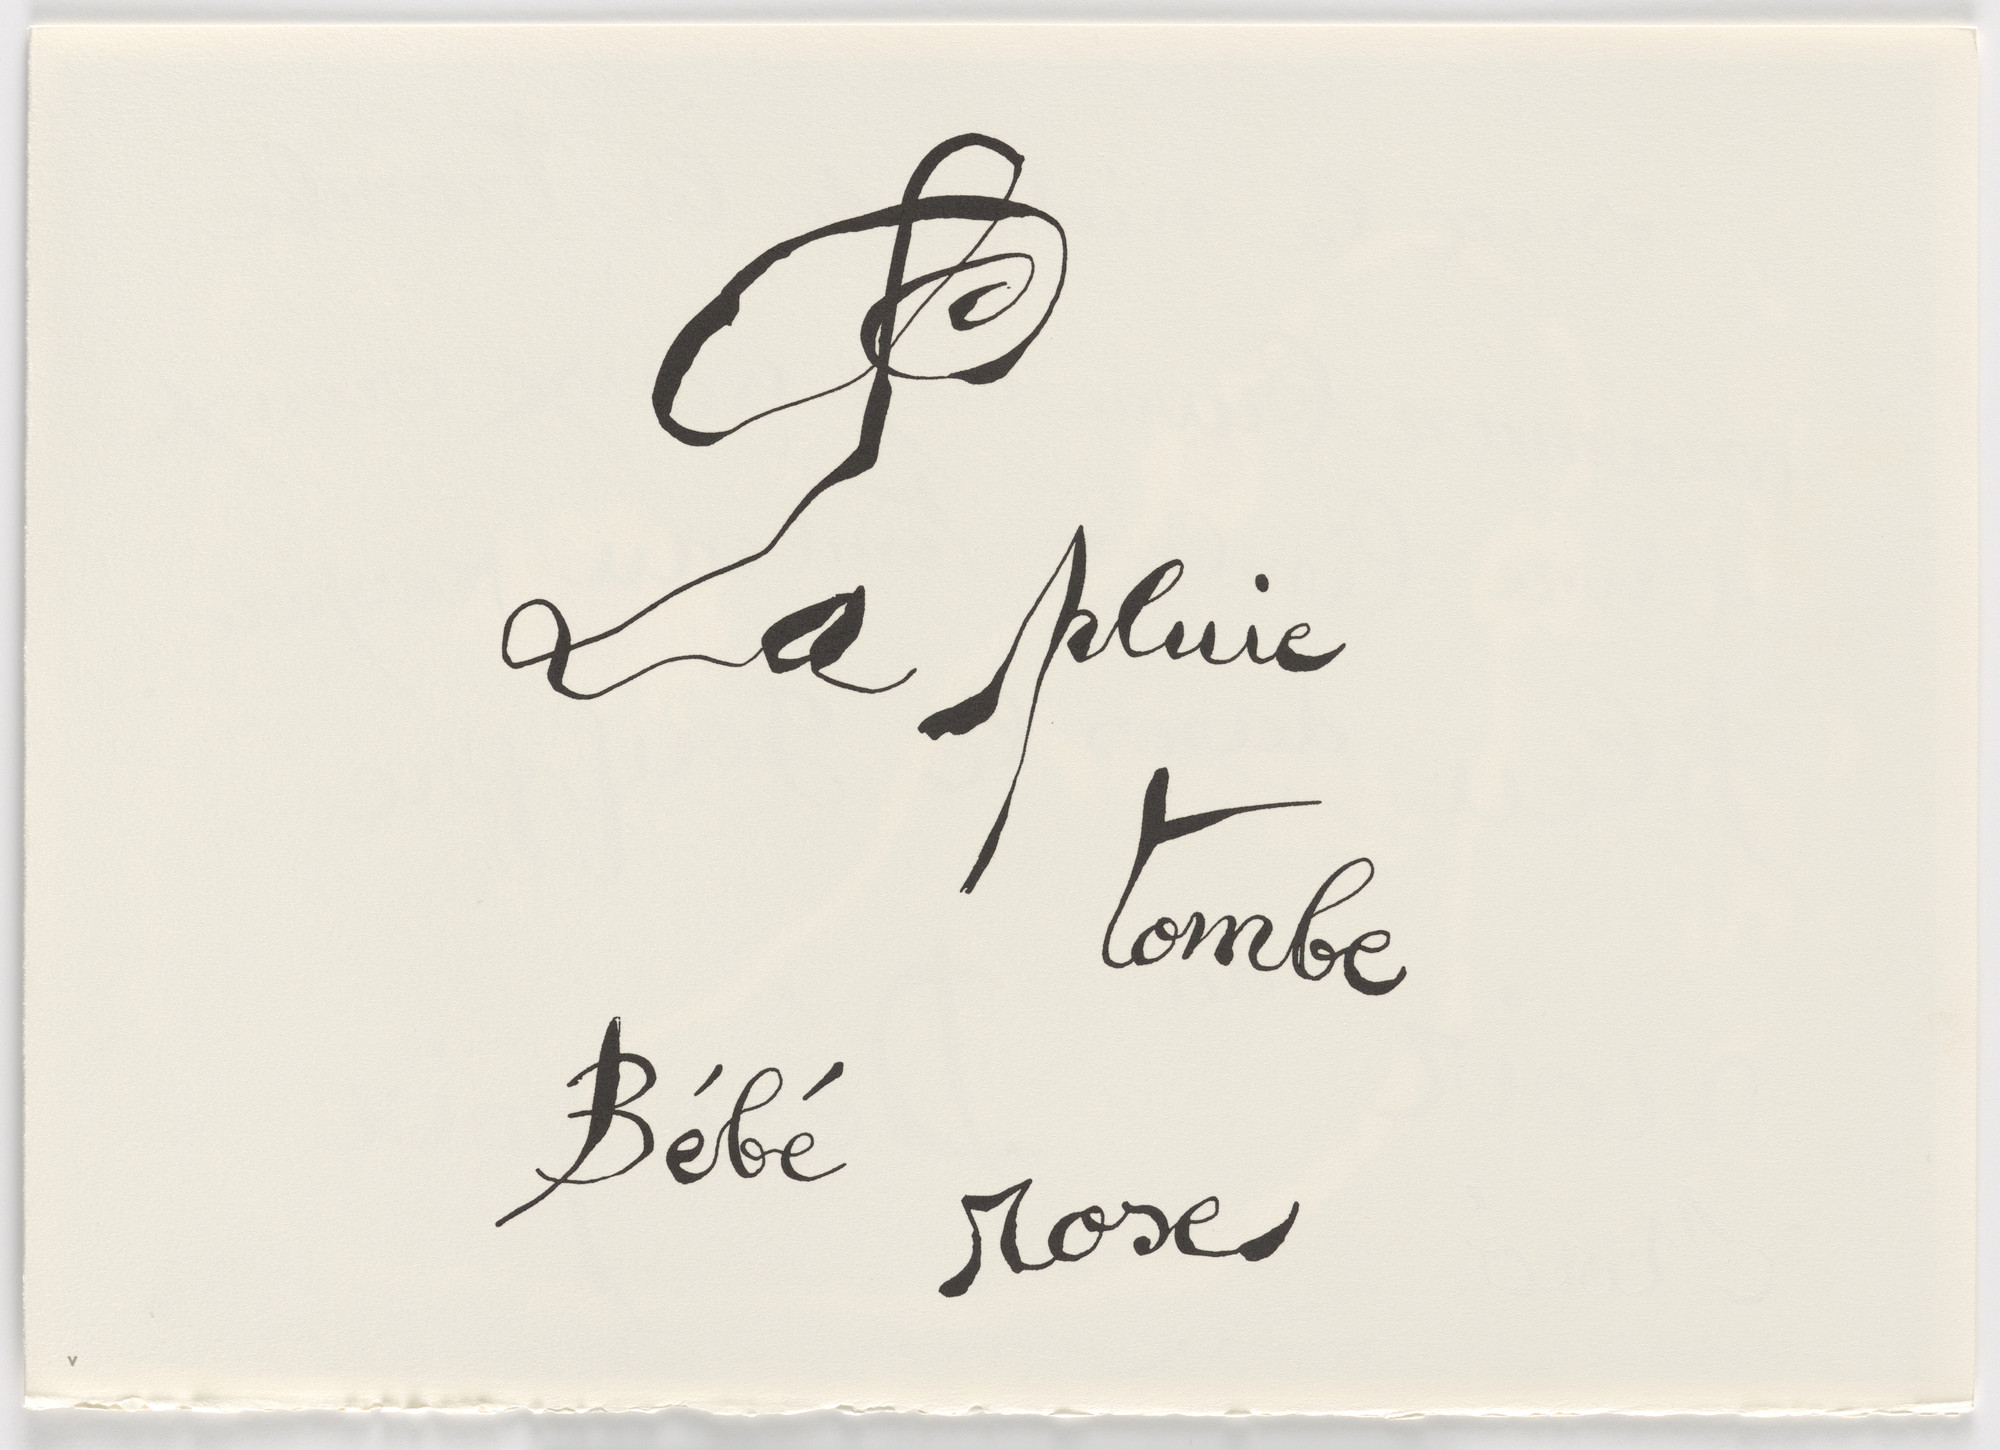 La pluie
tombe
Bébé
rose
v